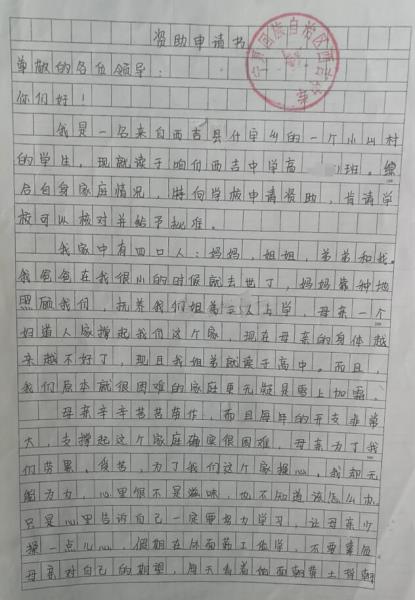 资助申请书
宁夏回族自治区西吉中学
尊敬的各位领导：
你们好！
我是一名来自西吉县什字乡的一个小山村
的学生，现就读于咱们西吉中学高 班。综
合自身家庭情况，特向学校申请资助，肯请学
校可以核对并给予批准。
我家中有四口人：妈妈，姐姐，弟弟和我。
我爸爸在我很小的时候就去世了，妈妈靠种地
照顾我们，抚养我们姐弟三人上学，母亲一个
妇道人家撑起我们这个家，现在母亲的身体越
来越不好了，现且我姐弟就读于高中。而且，
我们原本就很困难的家庭更无疑是雪上加霜。
母亲辛辛苦苦劳作，而且每年的开支非常
大，支撑起这个家庭确实很困难，母亲为了我
们劳累，受苦，为了我们这个家操心，我却无
能为力，心里很不是滋味，也不知道该怎么办
只是心里告诉自己一定要努力学习，让母亲少
操一点儿心，假期在外面打工休学，不要辜负
母亲对自己的期望，每天看着他面朝黄土背朝